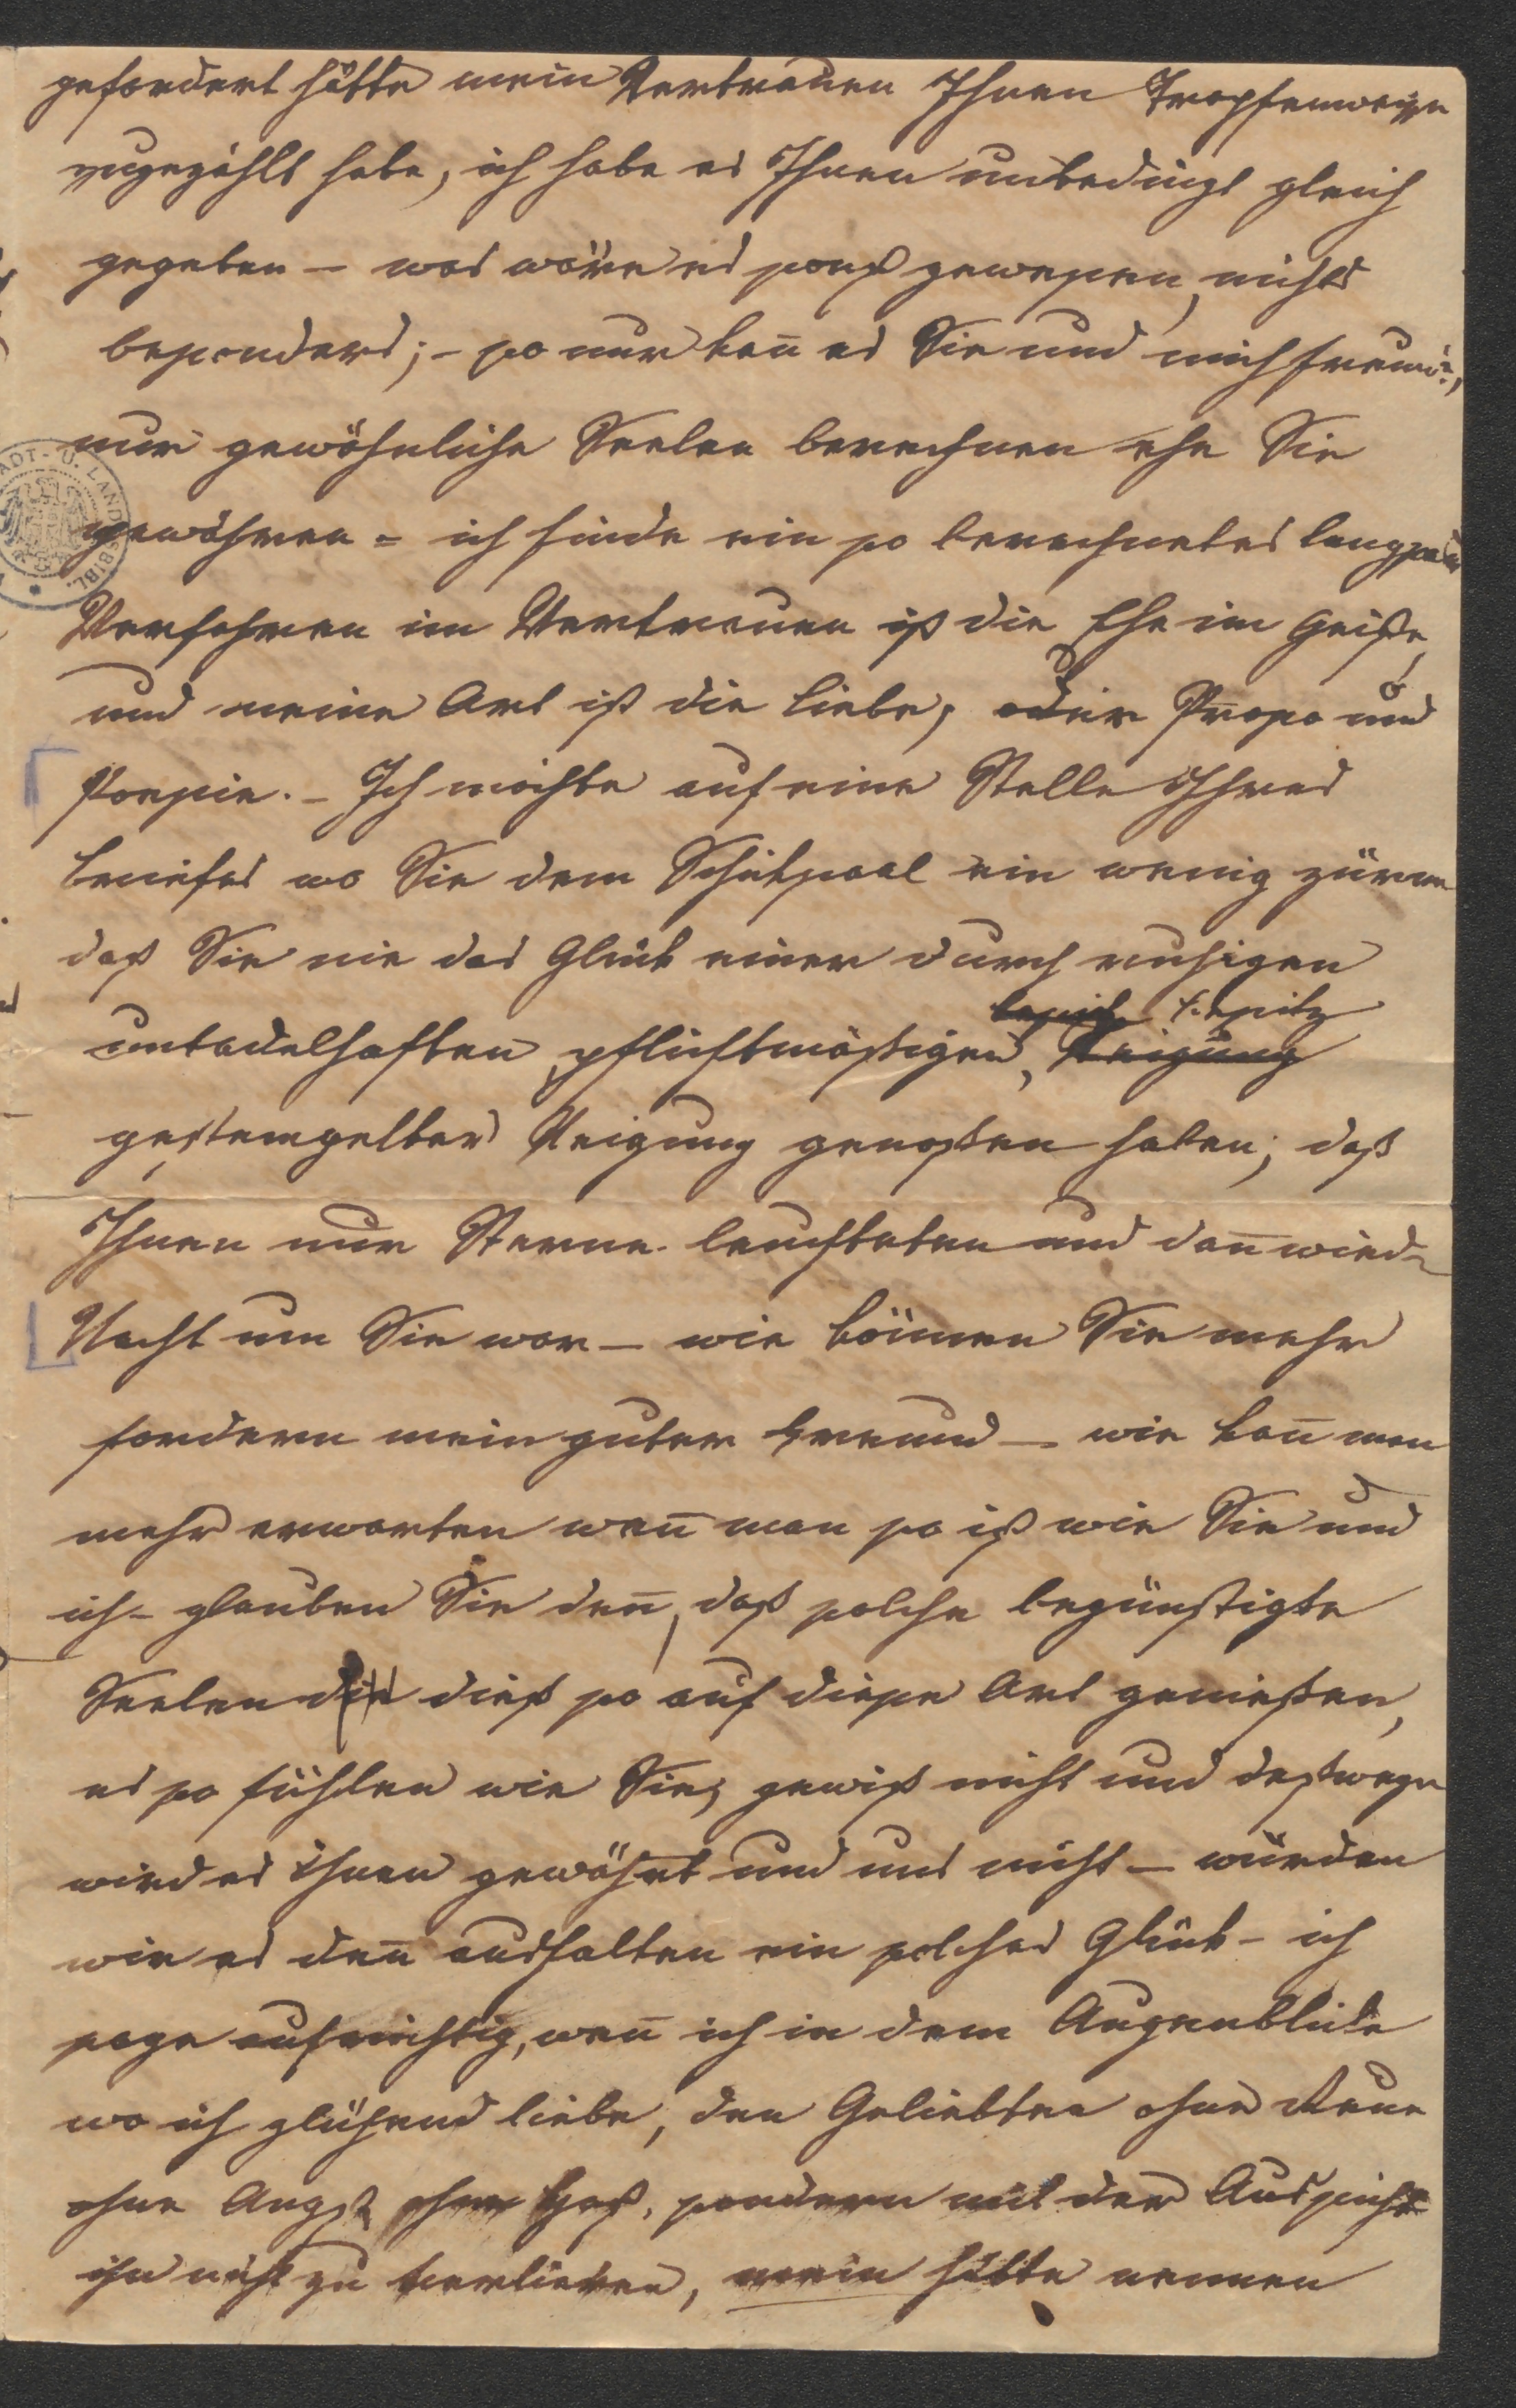 gefordert hätte mein Vertrauen Ihnen Tropfenweise
zugezählt habe, ich habe es Ihnen unbedingt gleich
gegeben – was wäre es sonst gewesen, nichts
besonders; – so nur kan̄ es Sie und mich freuen,
nur gewöhnliche Seelen berechnen ehe Sie
gewähren – ich finde ein so berechnetes langsames
Verfahren im Vertrauen ist die Ehe im Geiste,
und meine Art ist die Liebe, oder Prosa und
Poesie. – Ich möchte auf eine Stelle Ihres
Briefes wo Sie dem Schiksaal ein wenig zürnen
daß Sie nie das Glük einer durch ruhigen
Besitz
untadelhaften, pflichtmäßigen, Neigung
gestempelter Neigung genoßen haben; daß
Ihnen nur Sterne leuchteten und dan̄ wieder
Nacht um Sie war – wie können Sie mehr
fordern mein guter Freund – wie kan̄ man
mehr erwarten wen̄ man so ist wie Sie und
ich – glauben Sie den̄, daß solche begünstigte
Seelen die dieß so auf diese Art genießen,
es so fühlen wie Sie, gewiß nicht und deßwegen
wird es ihnen gewährt und uns nicht – würden
wir es den̄ aushalten ein solches Glük – ich
sage aufrichtig, wen̄ ich in dem Augenblike
wo ich glühend liebe, den Geliebten ohne Reue
ohne Angst ohne Haß, sondern mit der Aussicht
ihn nicht zu verlieren, mein hätte nennen
STADT- U. LANDESBIBL.